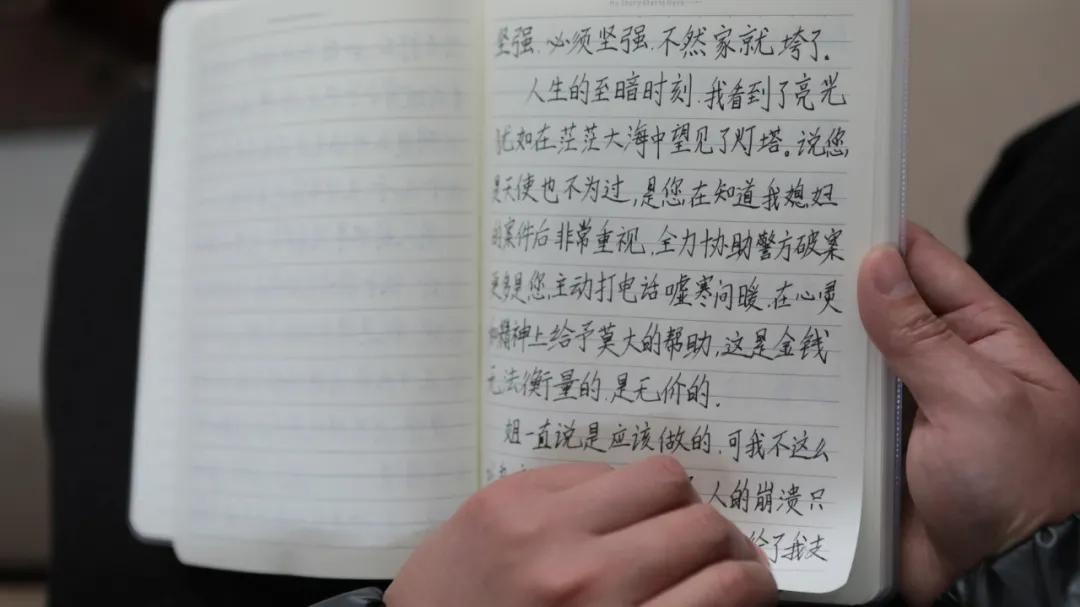 My Story Starts Here
坚强、必须坚强、不然家就垮了。
人生的至暗时刻、我看到了亮光
犹如在茫茫大海中望见了灯塔。说您
是天使也不为过,是您在知道我媳妇
的案件后非常重视,全力协助警方破案
更多是您主动打电话嘘寒问暖、在心灵
和精神上给予莫大的帮助,这是金钱
无法衡量的、是无价的.
姐一直说是应该做的、可我不这么
人的崩溃只
给了我支